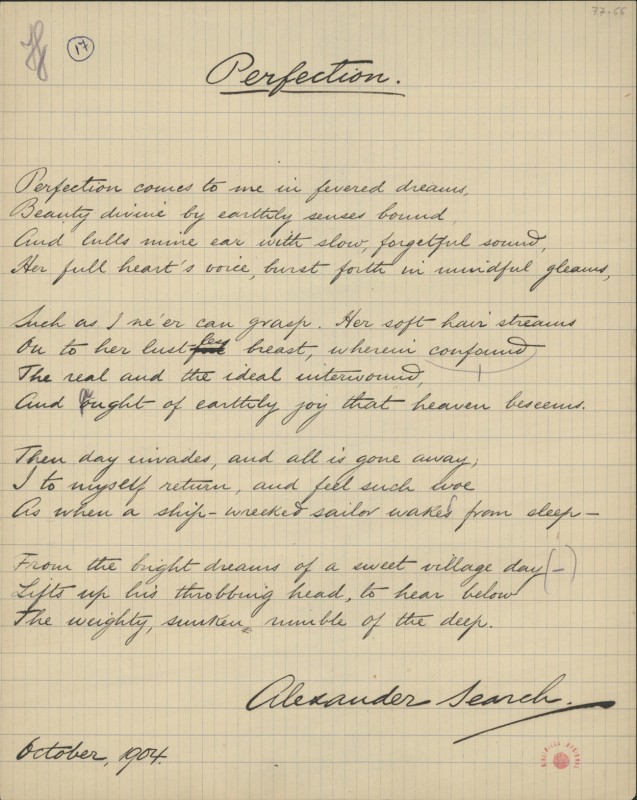 77-66
17
Perfection.
Perfection comes to me in fevered dreams,
Beauty divine by earthly senses bound,
And lulls mine ear with slow, forgetful sound,
Her full heart's voice, burst forth in mindful gleams,
Such as I ne'er can grasp. Her soft hair streams
On to her lustless breast, wherein confound
The real and the ideal interwound,
And aught of earthly joy that heaven beseems.
Then day invades, and all is gone away;
I to myself return, and feel such woe
As when a ship-wrecked sailor wakes from sleep —
From the bright dreams of a sweet village day (—)
Lifts up his throbbing head, to hear below
The weighty, sunken rumble of the deep.
Alexander Search.
October, 1904.